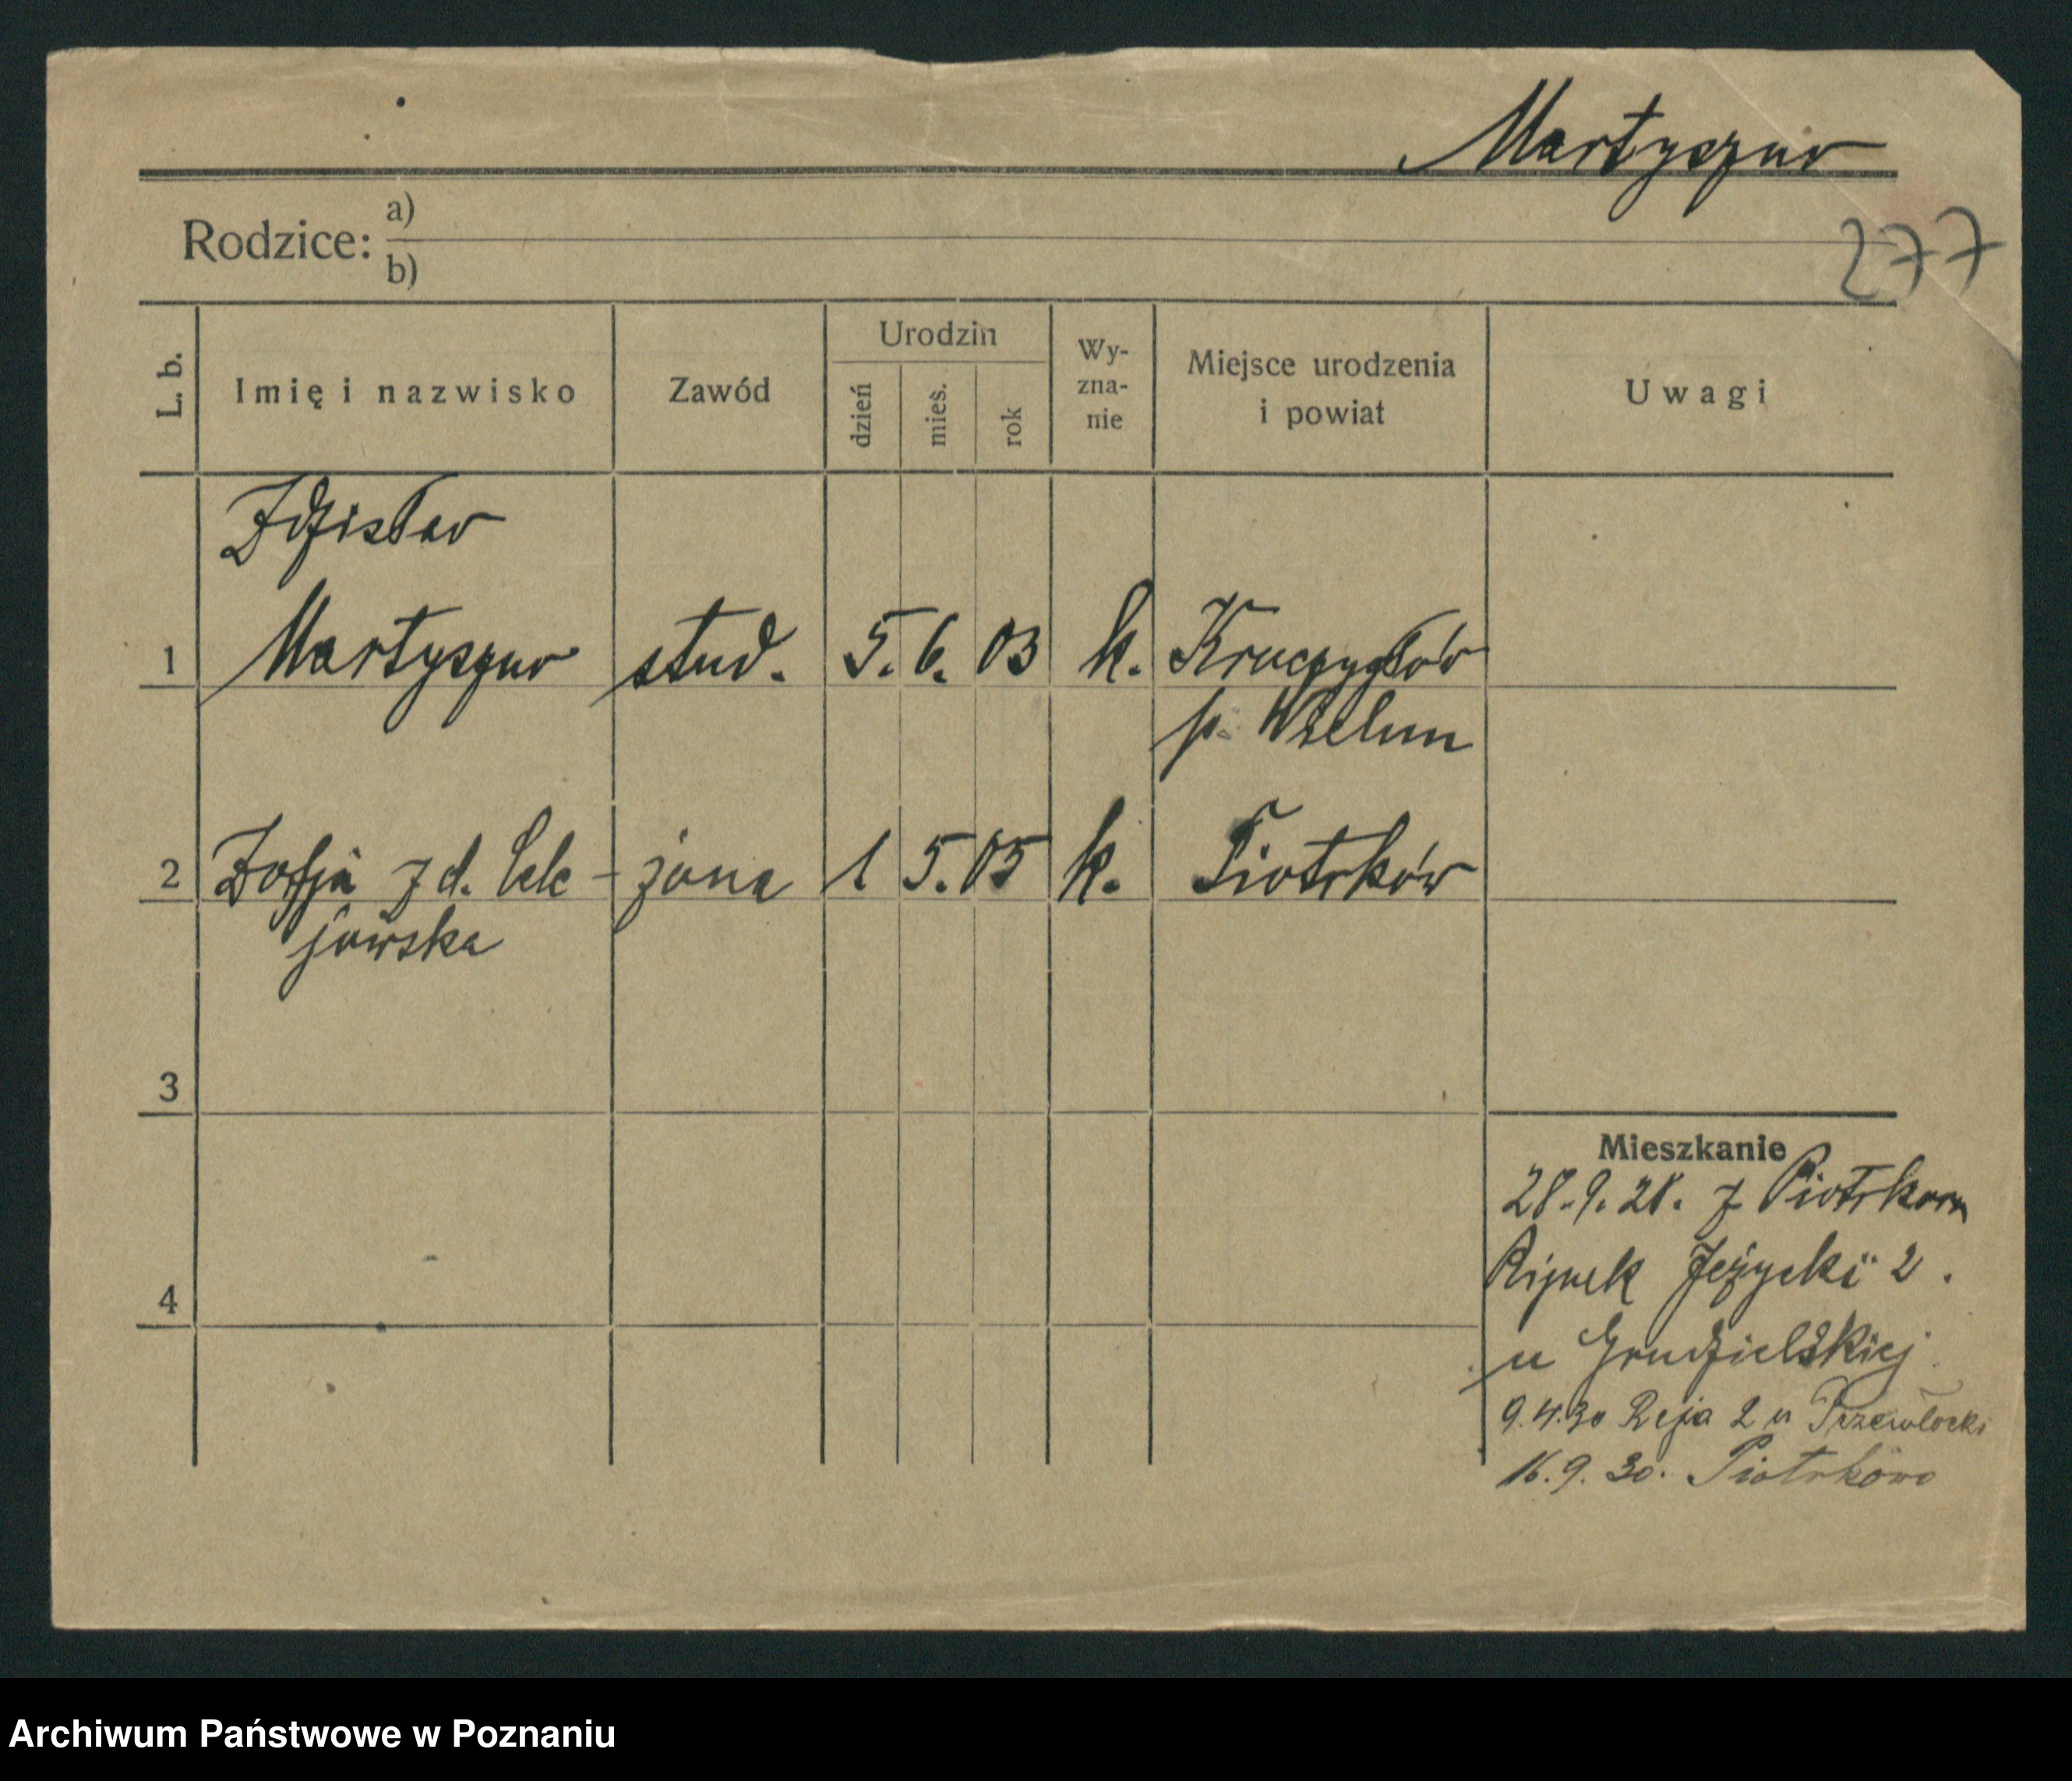 Martyszuw
277
Rodzice: a)
b)
L. b.
Imię i nazwisko
Zawód
Urodzin
dzień
mies.
rok
Wy-
zna-
nie
Miejsce urodzenia
i powiat
Uwagi
Zdzisław
1 Martyszuw stud. 5. 6. 03 k.
p. Wielun
2 Zofja z d. Lele- żona 1 5. 05 k. Piotrków
jowska
3
Mieszkanie
28.9.28. z Piotrkowa
4 Rynek Jeżycki 2.
u Grudzielskiej
9.4.30 Reja 2 u Przewłocki
16.9.30. Piotrków
Archiwum Państwowe w Poznaniu